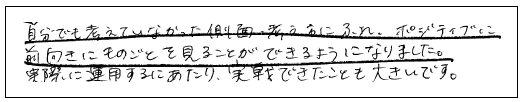 自分でも考えていなかった側面・考え方にふれ、ポジティブに
前向きにものごとを見ることができるようになりました。
実際に運用するにあたり、実戦できたことも大きいです。